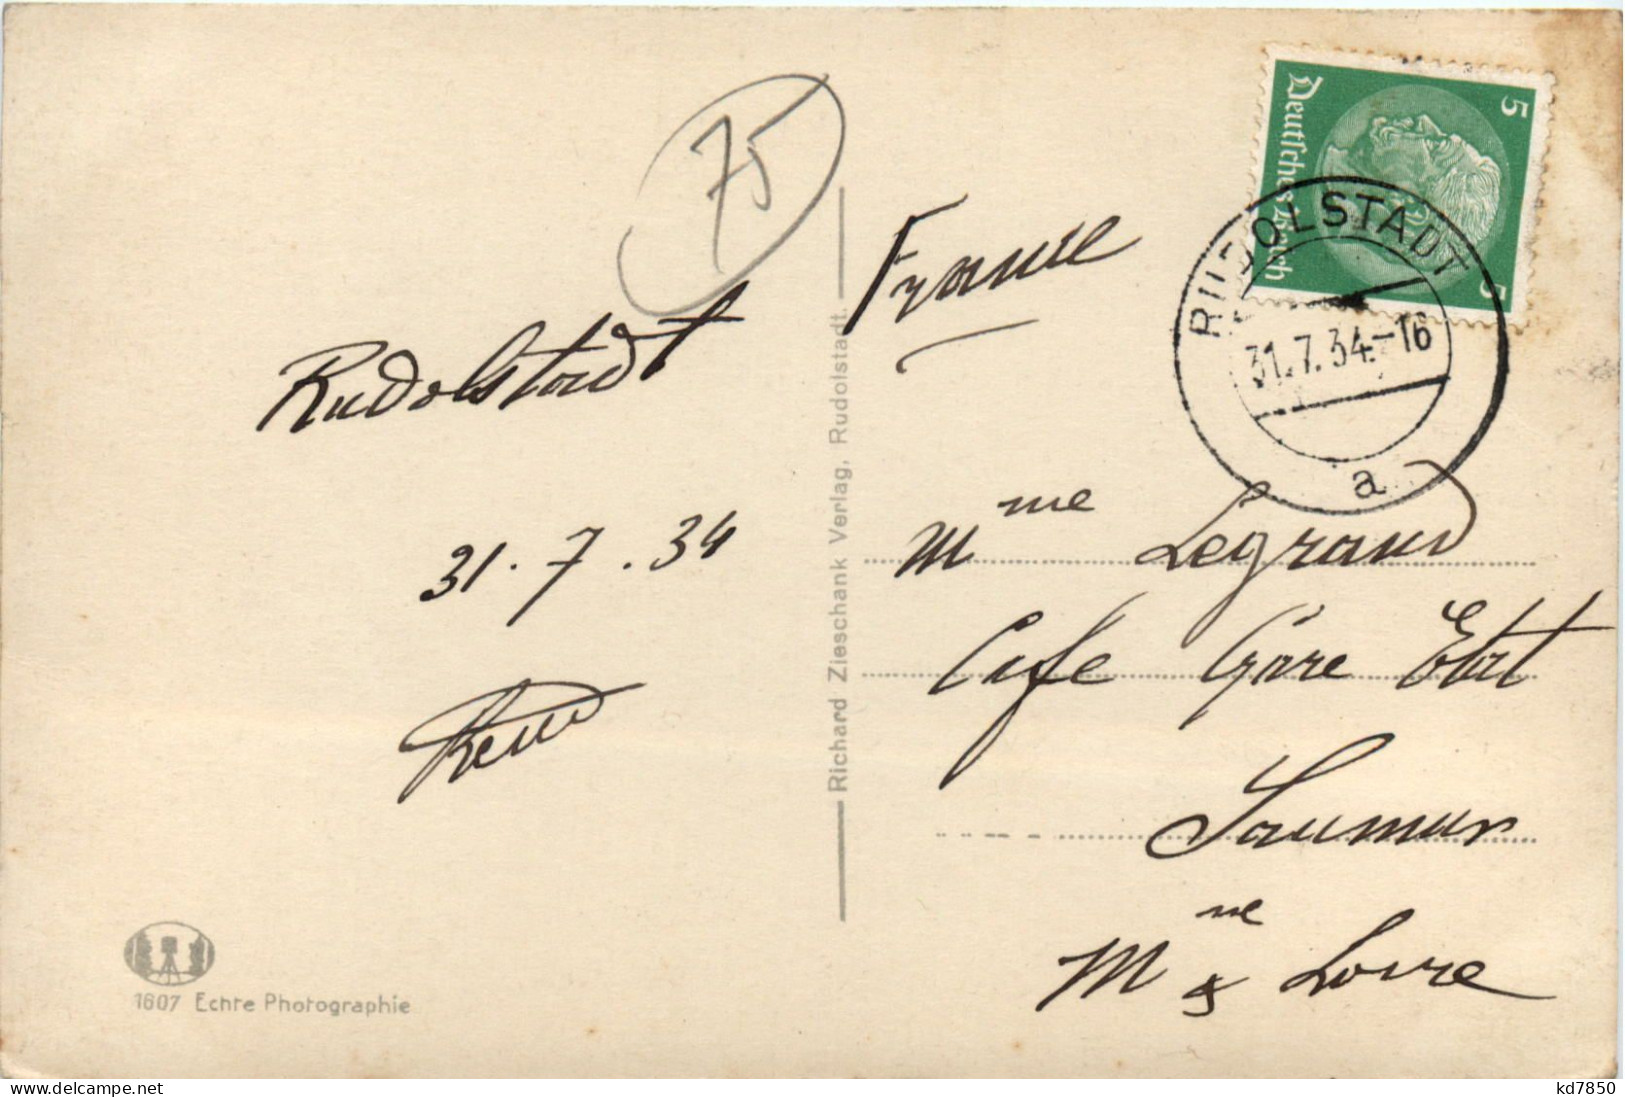 75
France
Deutsches Reich
5
5
RUDOLSTADT
31.7.34.-16
a
Rudolstadt
31.7.34
Richard Zieschank Verlag, Rudolstadt.
Mme Legrand
Café Gare Etat
Saumur
Mne & Loire
1607 Echte Photographie
www.delcampe.net
kd7850